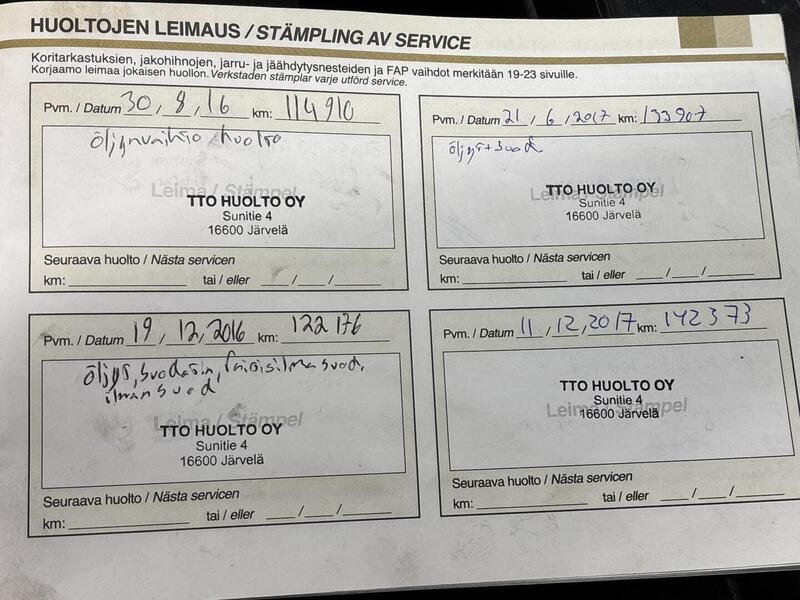 HUOLTOJEN LEIMAUS / STÄMPLING AV SERVICE
Koritarkastuksien, jakohihnojen, jarru- ja jäähdytysnesteiden ja FAP vaihdot merkitään 19-23 sivuille.
Korjaamo leimaa jokaisen huollon. Verkstaden stämplar varje utförd service.
Pvm. / Datum 30 , 8 , 16 km: 114910
öljynvaihto huolto
Leima / Stämpel
TTO HUOLTO OY
Sunitie 4
16600 Järvelä
Seuraava huolto / Nästa servicen
km: tai / eller / /
Pvm. / Datum 21 , 6 , 2017 km: 133907
öljyt + suod
Leima / Stämpel
TTO HUOLTO OY
Sunitie 4
16600 Järvelä
Seuraava huolto / Nästa servicen
km: tai / eller / /
Pvm. / Datum 19 , 12, 2016 km: 122176
öljyt, suodatin, raitisilmasuod,
ilmansuod
Leima / Stämpel
TTO HUOLTO OY
Sunitie 4
16600 Järvelä
Seuraava huolto / Nästa servicen
km: tai / eller / /
Pvm. / Datum 11 , 12, 2017 km: 142373
Leima / Stämpel
TTO HUOLTO OY
Sunitie 4
16600 Järvelä
Seuraava huolto / Nästa servicen
km: tai / eller / /